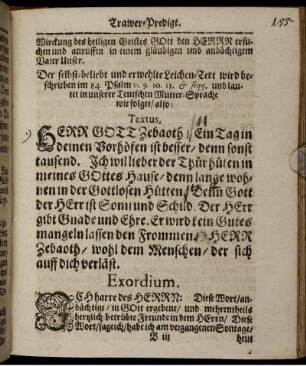 Trawer-Predigt.
155
Wirckung des heiligen Geistes GOtt den HERRN ersu-
chen und anruffen in einem gläubigen und andächtigem
Vater Unser.
Der selbst-beliebt und erwehlte Leichen-Text wird be-
schrieben im 84. Psalm v. 9. 10. 11. & seqq. und lau-
tet in unserer Teutschen Mutter-Sprache
wie folget/ also:
Textus,
HERR GOTT Zebaoth / Ein Tag in
deinen Vorhöfen ist besser/ denn sonst
tausend. Ich wil lieber der Thür hüten in
meines GOttes Hause/ denn lange woh-
nen in der Gottlosen Hütten/ Denn Gott
der HErr ist Sonn und Schild. Der HErr
gibt Gnade und Ehre. Er wird kein Gutes
mangeln lassen den Frommen/ HERR
Zebaoth/ wohl dem Menschen/ der sich
auff dich verläst.
Exordium.
ICH harre des HERRN: Diese Wort/ an-
dächtige/ in GOtt ergebene/ und mehrentheils
hertzlich betrübte Freunde in dem HErrn/ Diese
Wort/ sage ich/ hab ich am vergangenen Sontage/
B iij
heut